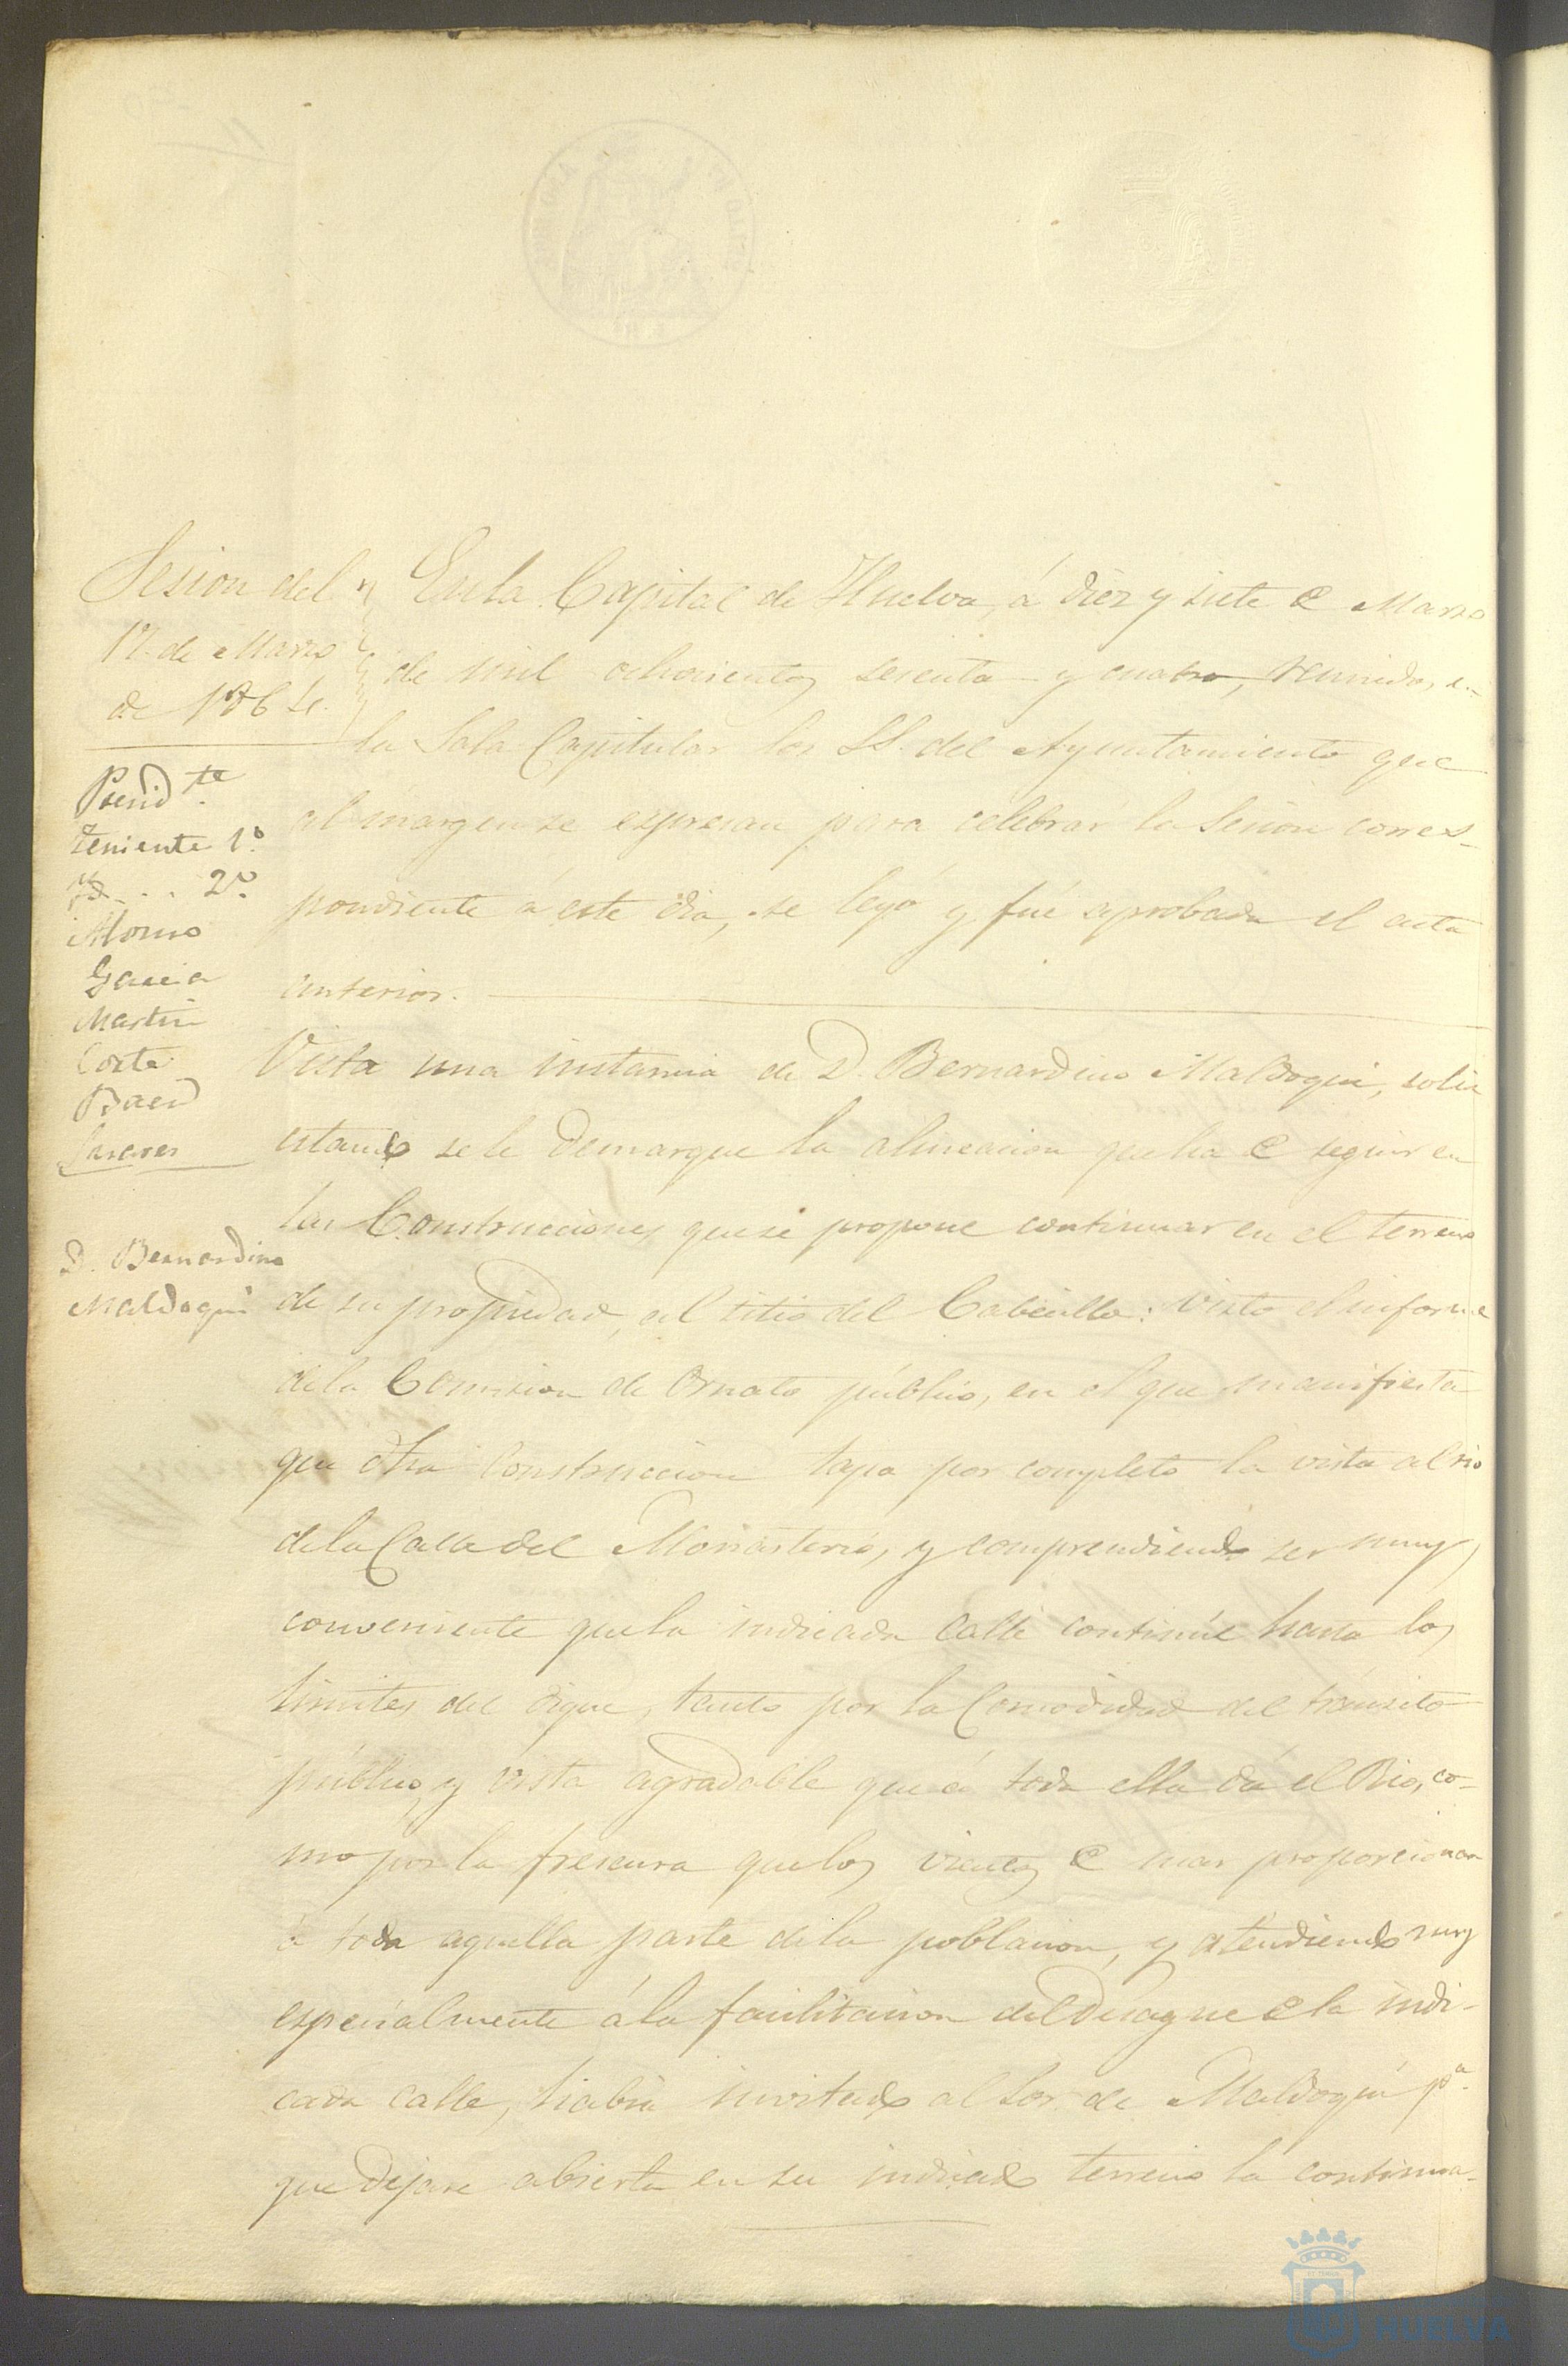 Sesion del
17. de Marzo
de 1864.
Presid.te
Teniente 1.º
Yd. . . 2.º
Garcia
Martin
Corte
Baez
D. Bernardino
Maldoqui
En la Capital de Huelva, á diez y siete de Marzo
de mil ochocientos sesenta y cuatro, reunidos en
la Sala Capitular los SS. del Ayuntamiento que
al margen se espresan para celebrar la Sesion corres-
pondiente á este dia, se leyó y fué aprobada el acta
anterior.
Vista una instancia de D. Bernardino Maldoqui, solici
citando se le demarque la alineacion que ha de seguir en
las Construcciones que se propone continuar en el terreno
de su propiedad, al sitio del Cabecillo: visto el informe
de la Comision de Ornato público, en el que manifiesta
que dha Construccion tapa por completo la vista al rio
de la Calle del Monasterio, y comprendiendo ser muy
conveniente que la indicada calle continúe hasta los
limites del dique, tanto por la Comodidad del tránsito
público, y vista agradable que á toda ella dá el Rio, co-
mo por la frescura que los vientos de mar proporcionan
á toda aquella parte de la poblacion, y atendiendo muy
especialmente á la facilitacion del desague de la indi-
cada calle, habia invitado al Sor. de Maldoqui p.a
que dejase abierta en su indicado terreno la continua-
HUELVA